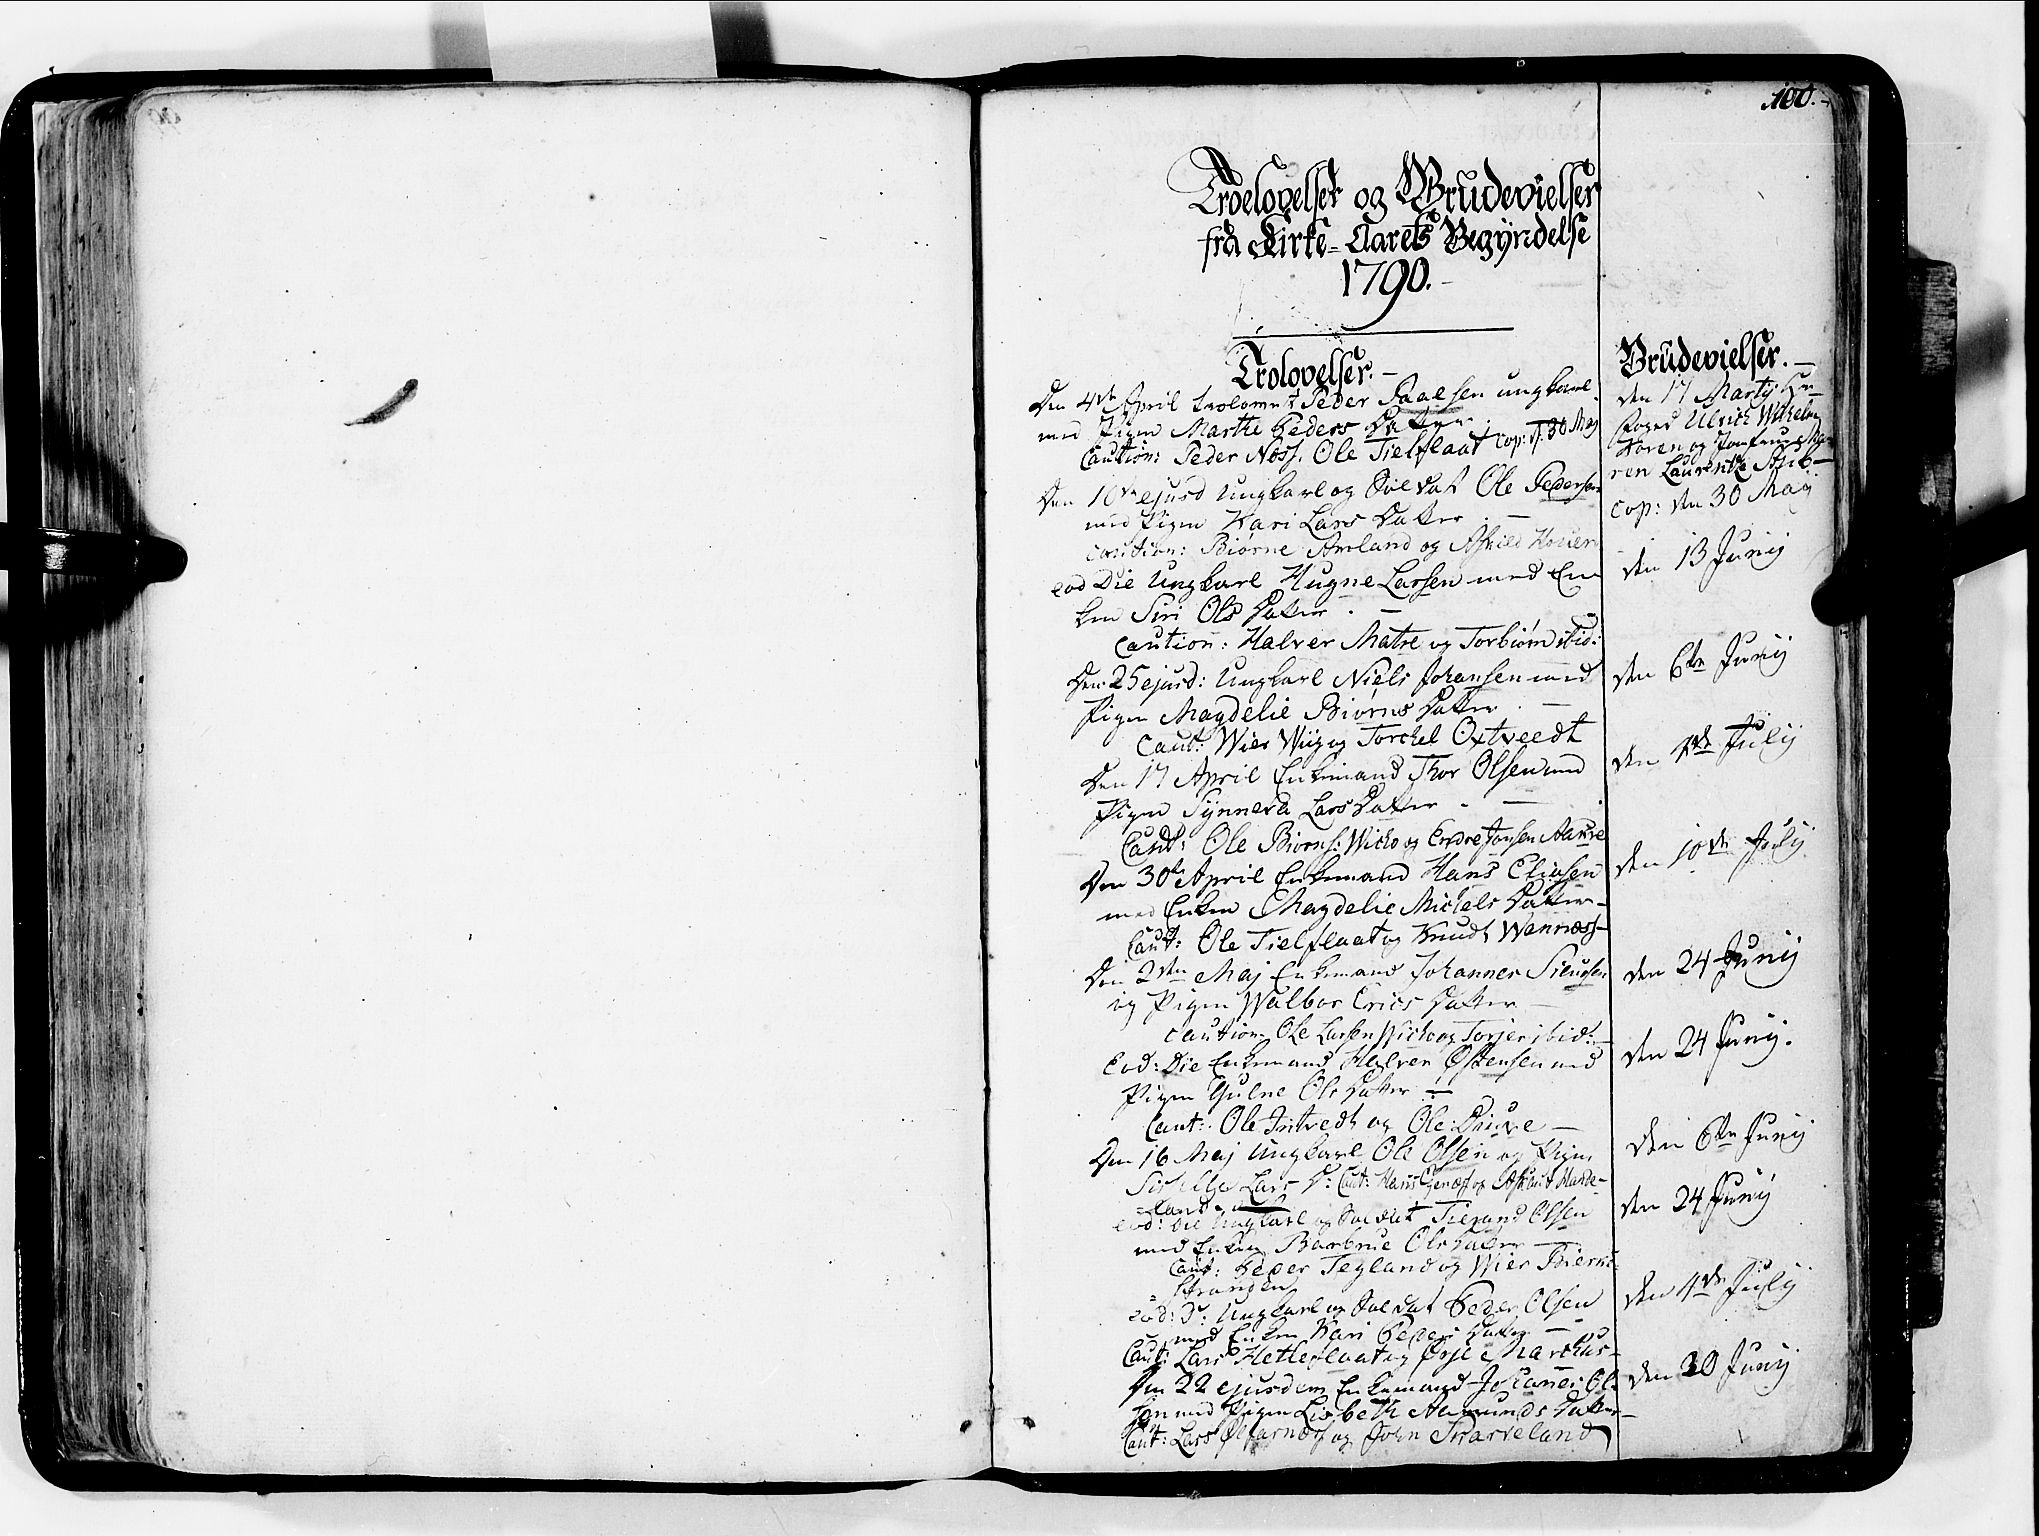 100.
Troelovelser og Brudevielser
fra Kirke-Aarets Begyndelse
1790.
Trolovelser.
Den 4de April trolovet Peder Paalsen ungkarl
med Pigen Marthe Peders Datter
Caution: Peder Næss. Ole Tielflaat cop: d. 30 May
Den 10de ejusd Ungkarl og Soldat Ole Pedersen
med Pigen Kari Lars Datter.
Caution: Biørne Amland og
eod Die Ungkarl Hugne Larsen med En-
ken Siri Ols Datter.
Caution: Halver Matre og Torbiørn ibid:
Den 25 ejusd: Ungkarl Niels Johansen med
Pigen Magdelie Biørns Datter.
Caut: Wier Wiig og Torchel Oxtveedt
Den 17 April Enkemand Thor Olsen med
Pigen Synneva Lars Datter.
Caut: Ole Biørns: Wicho og Endre Jonsen Aarre
Den 30te April Enkemand Hans Eliasen
med Enken Magdelie Michels Datter
Caut: Ole Tielflaat og Knudt Wannæss
Den 2den Maj Enkemand Johannes Siursen
og Pigen Walbor Erics Datter
Caution Ole Larsen Wicho og Torjer ibid:
Eod: Die Enkemand Halver Østensen med
Pigen Gulne Ols Datter
Caut: Ole Intvedt og Ole Diuve
Den 16 Maj Ungkarl Ole Olsen og Pigen
Lars D: Caut: Hans og Askaut Hande-
land
eod: Die Ungkarl og Soldat Tierand Olsen
med Enken Barbrue Ols Datter
Caut: Peder Tegland og Wier Bierne-
stranden
eod: D: Ungkarl og Soldat Peder Olsen
med Enken Kari Peders Datter
Caut: Lars Hetleflaat og Marchus-
Den 22 ejusdem Enkemand Johanes Ol-
sen med Pigen Lisbeth Aamunds Datter
Caut: Lars Ølfarnæs og John Tvarveland
Brudevielser.
Den 17 Martij Hr
Foged Ulrich Wilhelm
Koren og Jomfrue Ma-
ren Laurentze Stub
cop: den 30 May
den 13 Junij
den 6te Junij
den 4de July
den 10de July
den 24 Junij
den 24 Junij.
den 6te Junij
den 24 Junij
den 4de July
den 20 Junij